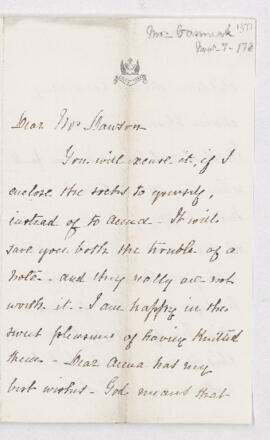 Dear Mrs Dawson
You will excuse it, if I
enclose the socks to yourself,
instead of to Anna - It will
save you both the trouble of a
note - and they really are not
worth it - I am happy in the
sweet pleasure of having knitted
them - Dear Anna has my
best wishes - God means that